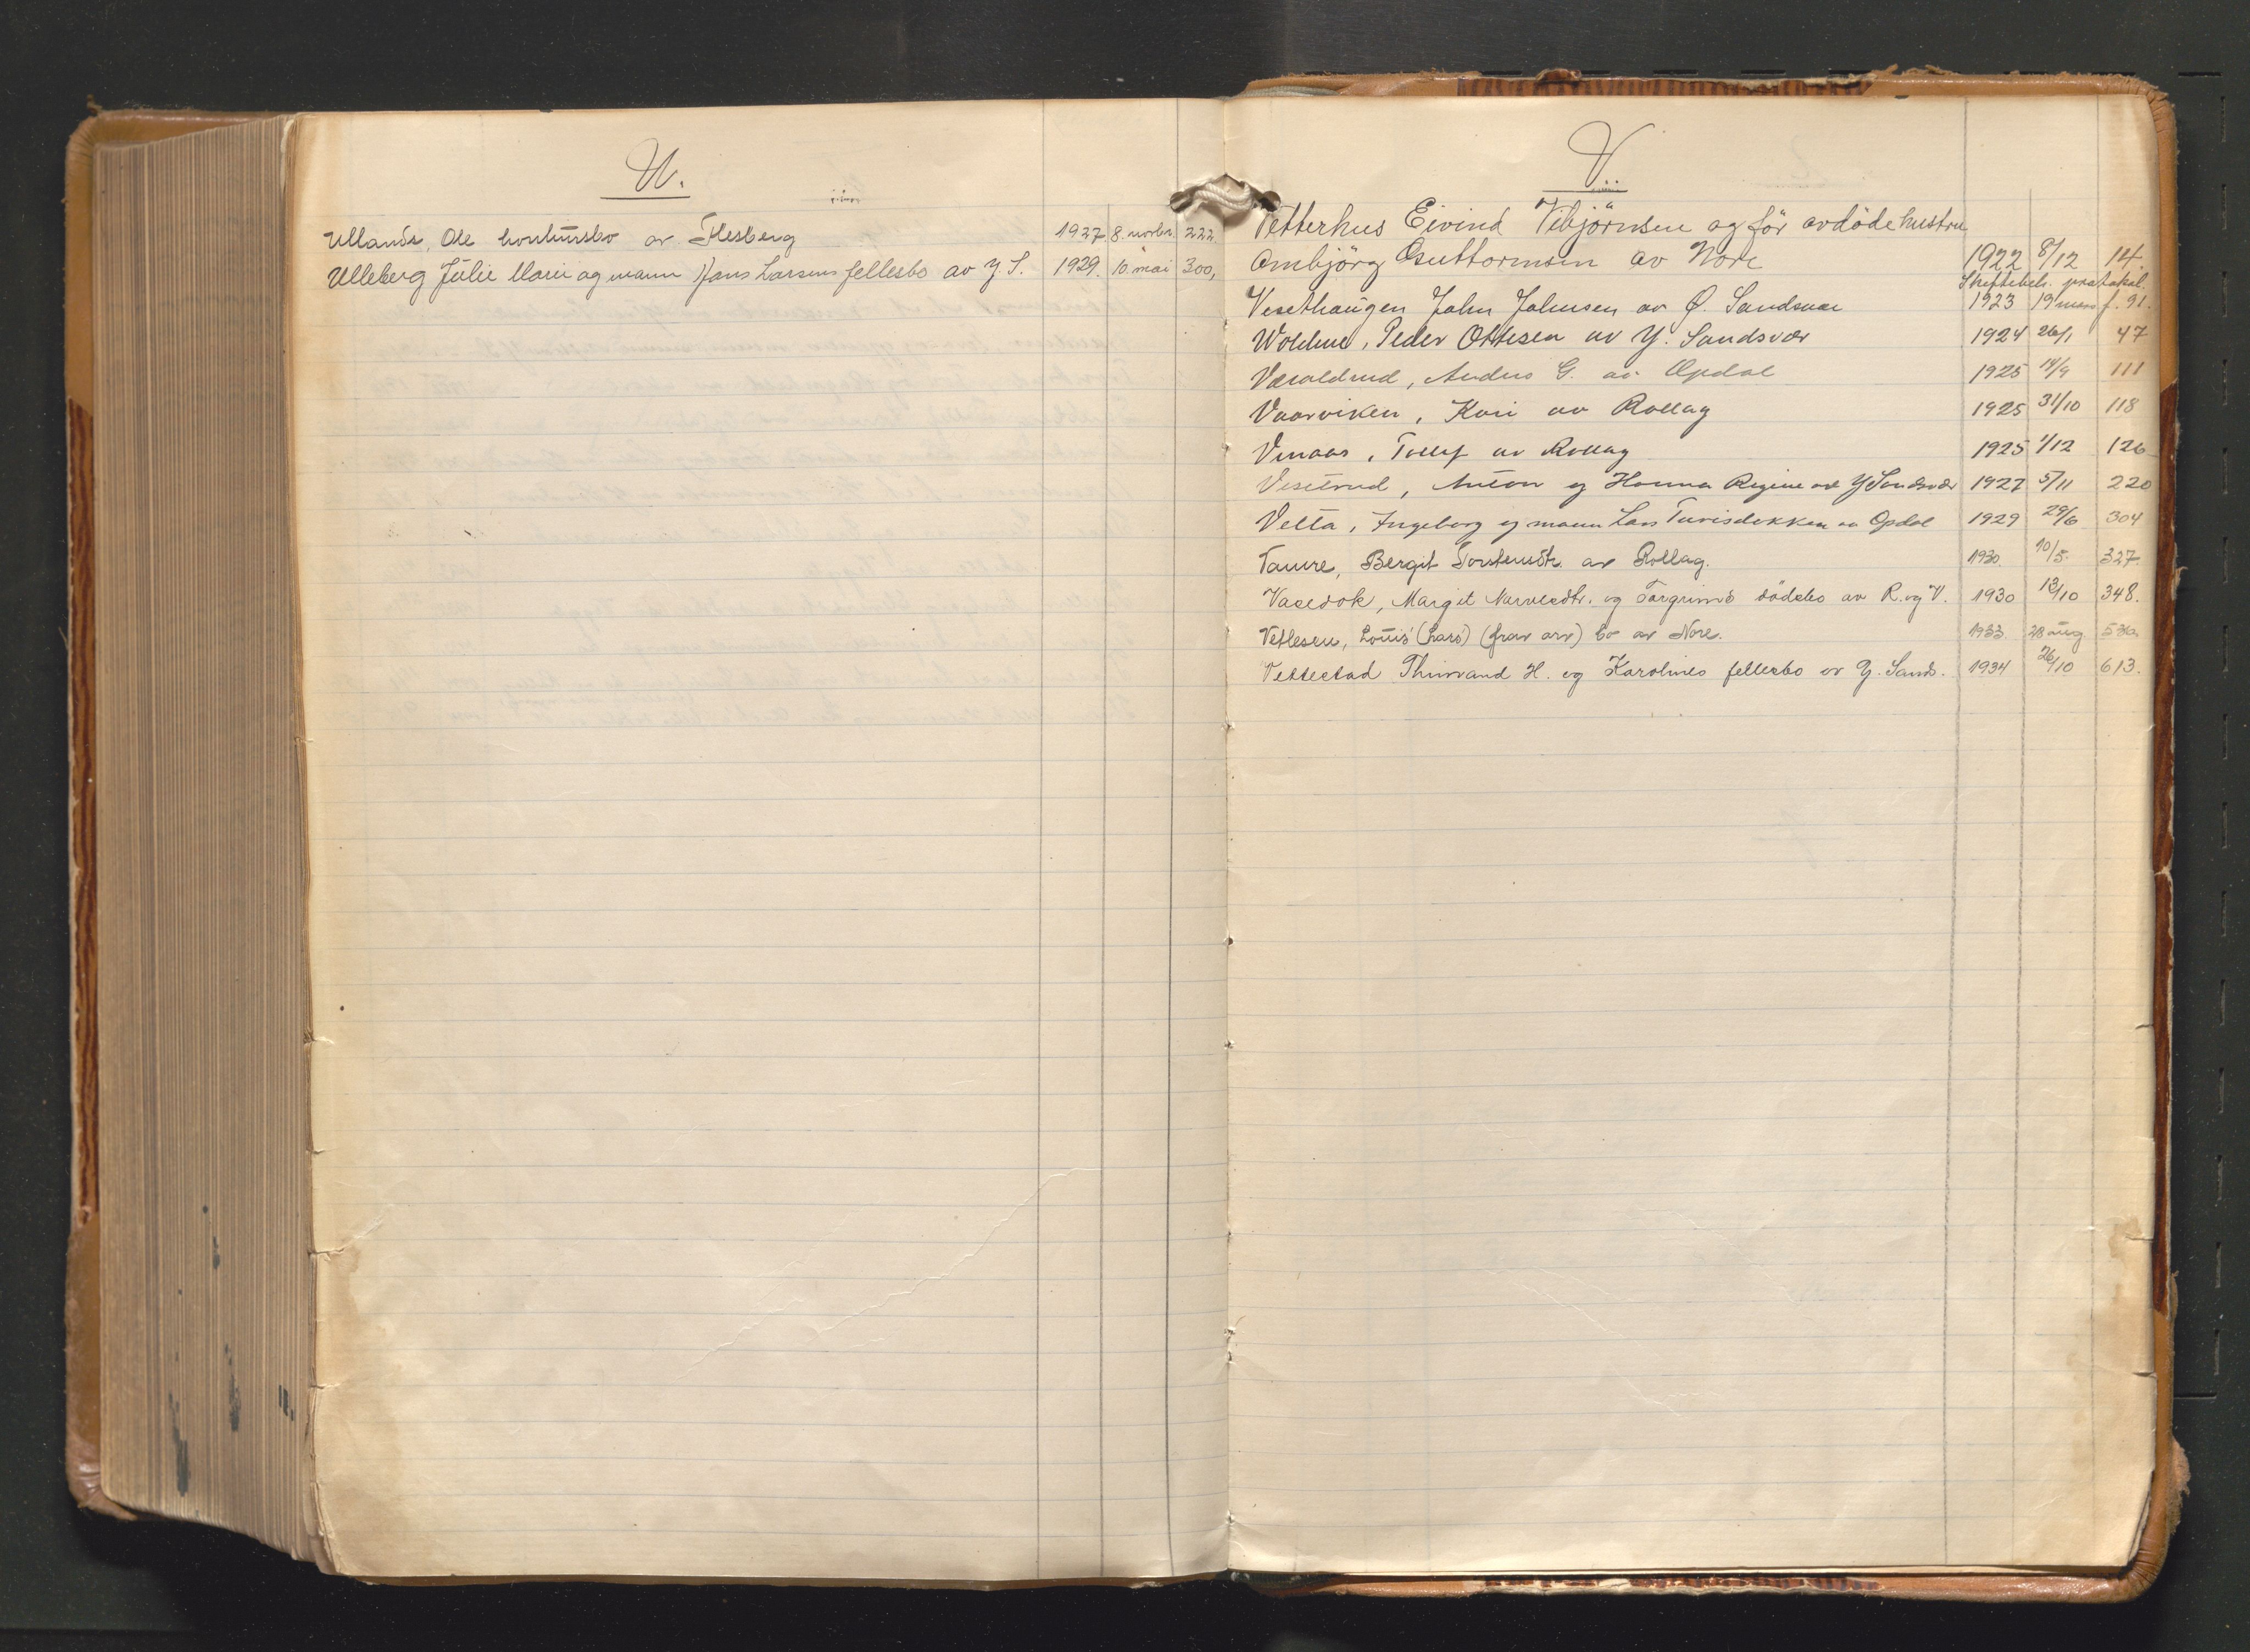 U.
Ullands, Ole konkursbo av Flesberg 1927 8. novbr. 222.
Ulleberg Julie Marie og mann Hans Larsens fellesbo av Y. S. 1929. 10. mai 300,
V.
Vetterhus Eivind Vebjörnsen og för avdöde hustru
Ambjörg Guttormsen av Nore 1922 8/12 14.
Skiftebeh. protokol.
Vesethaugen John Johnsen av Ø. Sandsvær 1923 19 mars f. 91.
Wolden, Peder Ottesen av Y. Sandsvær 1924 26/1 47
Væraldrud, Anders G. av Opdal 1925 14/9 111
Vaarviken, Kari av Rollag 1925 31/10 118
Vinaas, Tollef av Rollag 1925 1/12 126
Vesterud, Anton og Hanna Regine av Y Sandsvær 1927 5/11 220
Vetta, Ingeborg og mann Lars Turisdokken av Opdal 1929 29/6 304
Taure, Bergit Torstensdtr. av Rollag. 1930. 10/5. 327.
Vasedok, Margit Narvesdtr. og Torgrims dödsbo av R. og V. 1930 13/10 348.
Vetlesen, Louis (Lars) (frav. arv) bo av Nore. 1933. 28 aug. 536.
Vettestad Thinrand H. og Karolines fellesbo av Y. Sands. 1934 26/10 613.